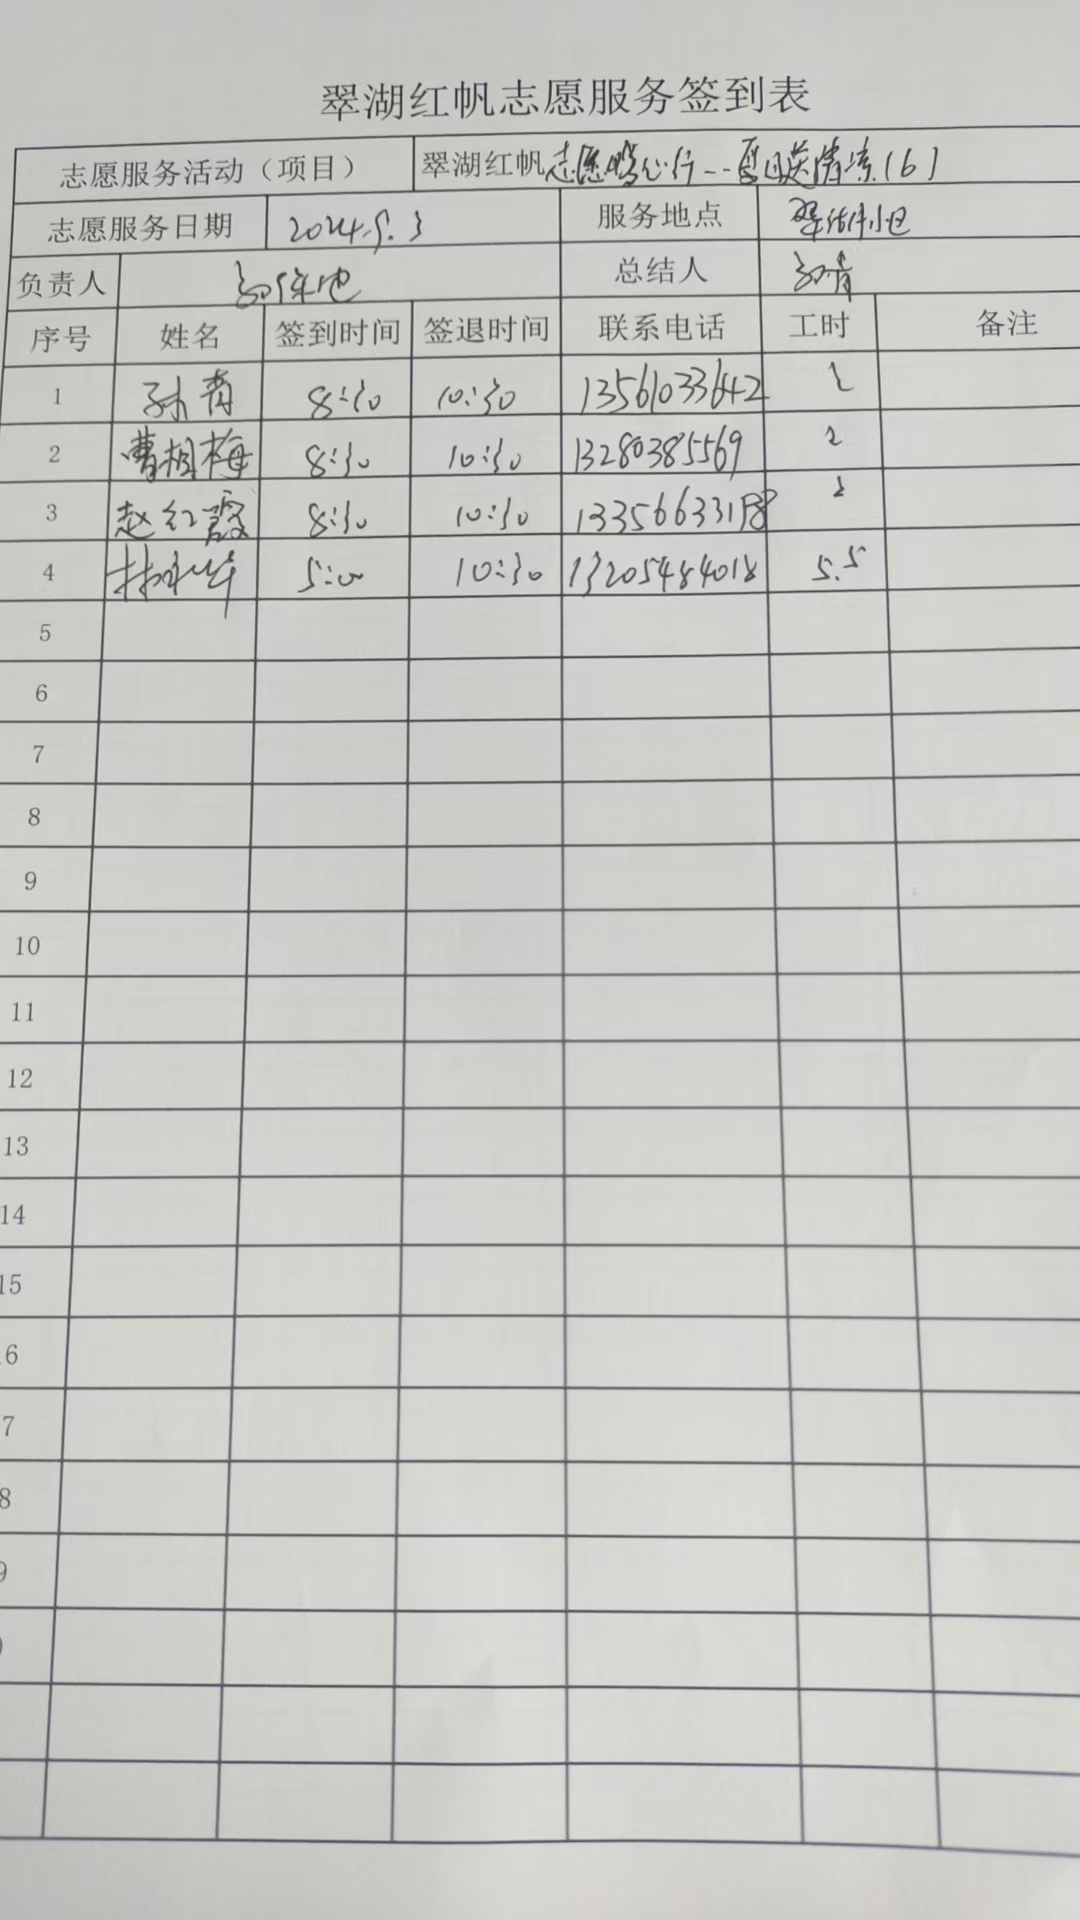 翠湖红帆志愿服务签到表
志愿服务活动（项目） 翠湖红帆志愿暖心行--夏日送清凉(6)
志愿服务日期 服务地点
负责人 总结人 孙青
序号 姓名 签到时间 签退时间 联系电话 工时 备注
1 孙青 8:30 10:30 13561033642 2
2 曹相梅 8:30 10:30 13280385569 2
3 赵红霞 8:30 10:30 2
4 5:00 10:30 13205484018 5.5
5
6
7
8
9
10
11
12
13
14
15
6
7
8
9